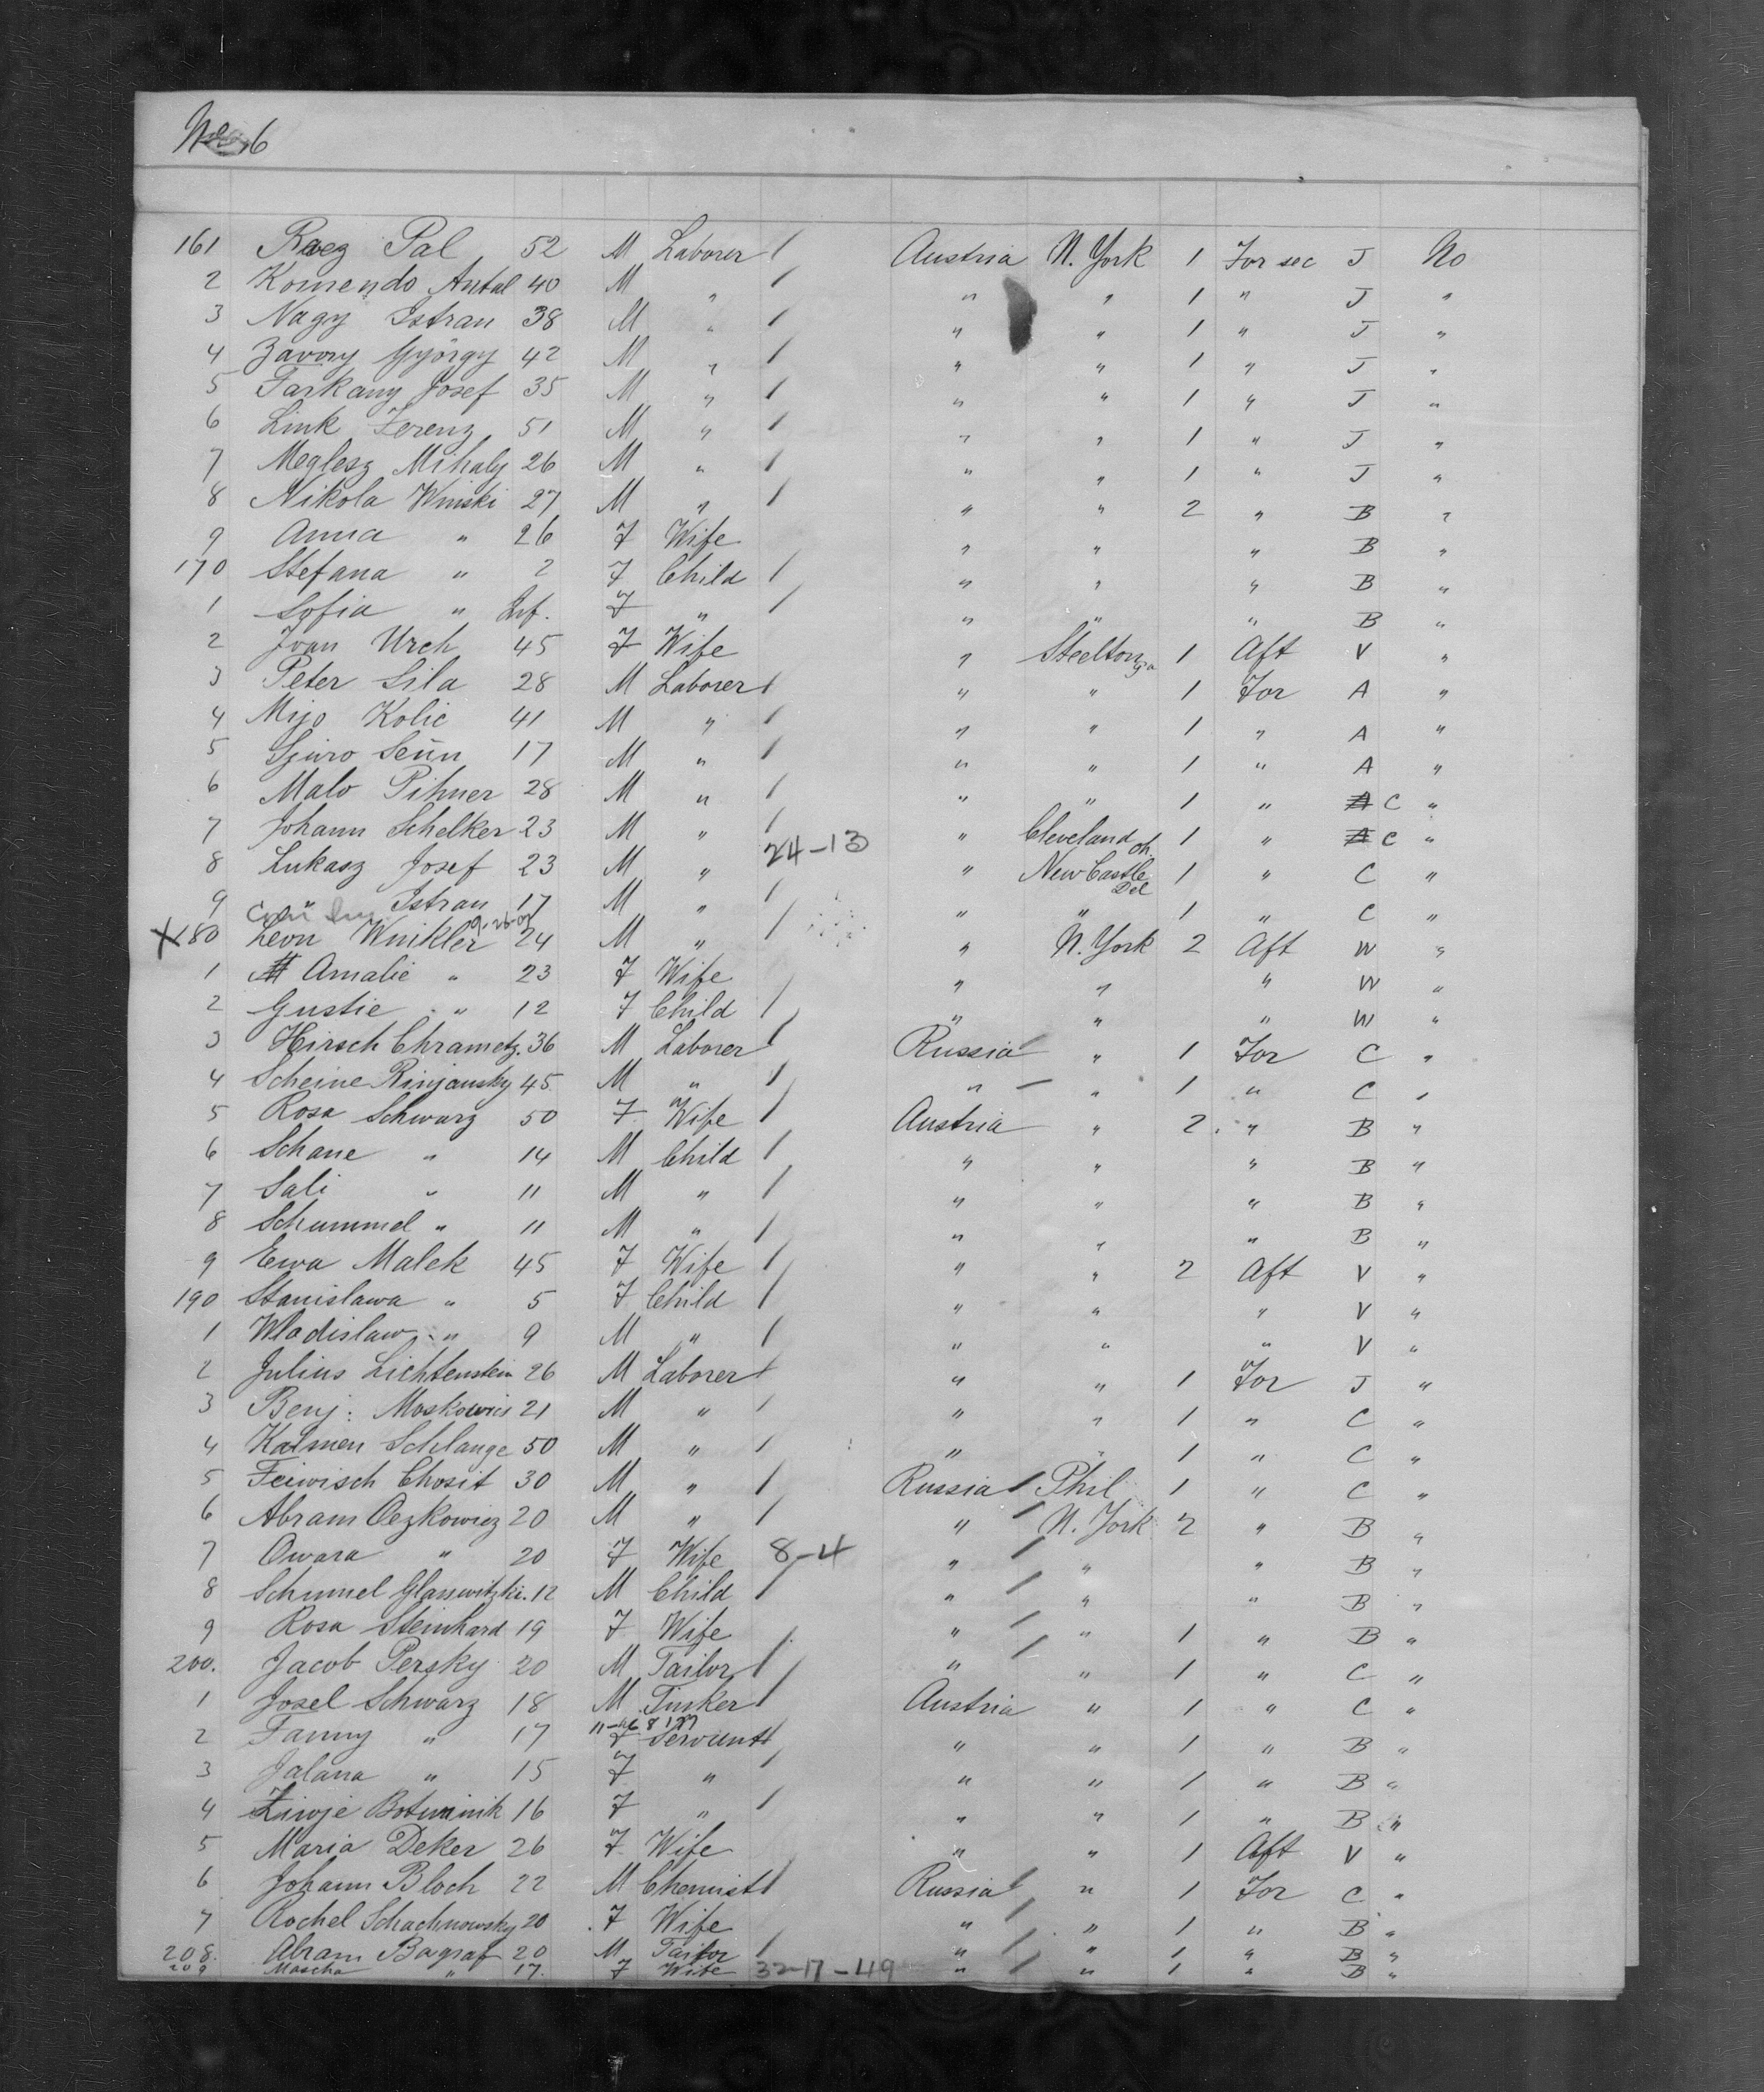 No 6
161 Racz Pal 52 M Laborer / Austria N. York 1 For sec J No
2 Komendo Antal 40 M " / " " 1 " J "
3 Nagy Istran 38 M " / " " 1 " J "
4 Zavory György 42 M " / " " 1 " J "
5 Farkany Josef 35 M " / " " 1 " J "
6 Link Ferenz 51 M " / " " 1 " J "
7 Meglesz Mihaly 26 M " / " " 1 " J "
8 Nikola Winski 27 M " / " " 2 " B "
9 Anna " 26 F Wife " " " B "
170 Stefana " 2 F Child / " " " B "
1 Sofia " Inf. F " / " " " B "
2 Ivan Urch 45 F Wife " Steelton Pa 1 Aft V "
3 Peter Sila 28 M Laborer / " " 1 For A "
4 Mijo Kolic 41 M " / " " 1 " A "
5 Gjuro 17 M " / " " 1 " A "
6 Malo Pihner 28 M " / " " 1 " A C "
7 Johann Schelker 23 M " / " Cleveland Oh. 1 " A C "
8 Lukasz Josef 23 M " 24-13 " New Castle Del 1 " C "
9 " Istran 17 M " / " " 1 " C "
X 180 Leon Winkler 24 M " / " N. York 2 Aft W "
1 Amalie " 23 F Wife " " " W "
2 Gustie " 12 F Child / " " " W "
3 Hirsch Chrametz. 36 M Laborer / Russia " 1 For C "
4 Scheine Rinjansky 45 M " / " " 1 " C "
5 Rosa Schwarz 50 F Wife / Austria " 2 " B "
6 Schane " 14 M Child / " " " B "
7 Sali " 11 M " / " " " B "
8 Schummel " 11 M " / " " " B "
9 Ewa Malek 45 F Wife / " " 2 Aft V "
190 Stanislawa " 5 F Child / " " " V "
1 Wladislaw " 9 M " / " " " V "
2 Julius Lichtenstein 26 M Laborer / " " 1 For J "
3 Benj: Moskowics 21 M " / " " 1 " C "
4 Kalmen Schlange 50 M " / " " 1 " C "
5 Feiwisch Chosit 30 M " / Russia / Phil 1 " C "
6 Abram Oezkowicz 20 M " / " / N. York 2 " B "
7 Owara " 20 F Wife 8-4 " / " " B "
8 Schmuel Glanwitzki. 12 M Child / " / " " B "
9 Rosa Steinhard 19 F Wife " / " 1 " B "
200. Jacob Persky 20 M Tailor / " / " 1 " C "
1 Josel Schwarz 18 M Tinker / Austria " 1 " C "
2 Fanny " 17 F Servant / " " 1 " B "
3 Jalana " 15 F " / " " 1 " B "
4 Ziwje Botwinik 16 F " / " " 1 " B "
5 Maria Deker 26 F Wife " " 1 Aft V "
6 Johann Bloch 22 M Chemist / Russia / " 1 For C "
7 Rochel Schachnowsky 20 F Wife " / " 1 " B "
208. Abram Bagraf 20 M Tailor / " / " 1 " B "
209 Mascha " 17. F Wife 32-17-49 " / " 1 " B "